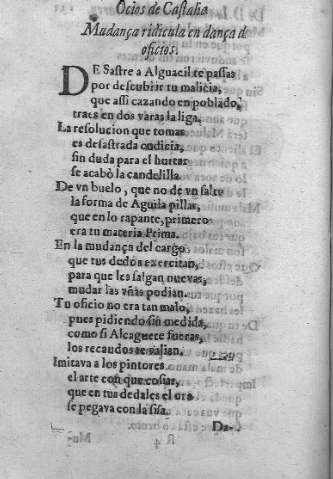 Ocios de Castalia
Mudança ridicula en dança d
oficios.
DE Sastre a Alguacil te passas
por descubrir tu malicia,
que assi cazando en poblado,
traes en dos varas la liga,
La resolucion que tomas
es desastrada codicia,
sin duda para el hurtar
se acabò la candelilla.
De vn buelo, que no de vn salto
la forma de Aguila pillas,
que en lo rapante, primero
era tu materia Prima.
En la mudança del cargo
que tus dedos exercitan,
para que les salgan nueuas,
mudar las vñas podian.
Tu oficio no era tan malo,
pues pidiendo sin medida,
como si Alcaguete fueras,
los recaudos te valian.
Imitaua a los pintores
el arte con que cosias,
que en tus dedales el oro
se pegava con la sisa.
Da-